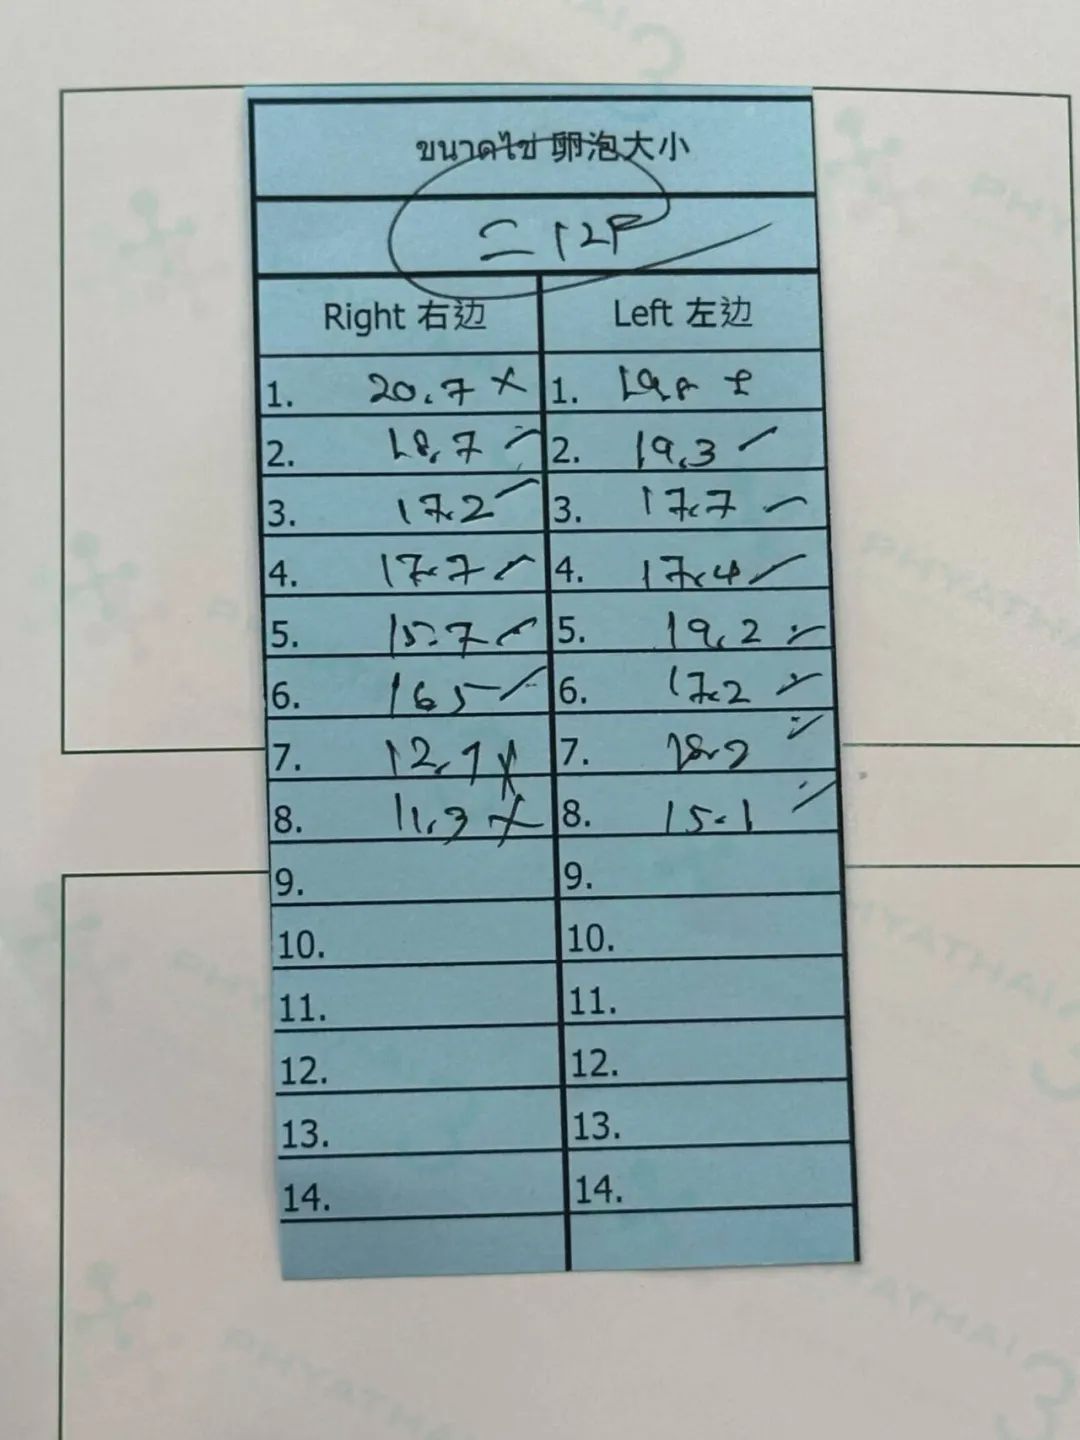 ขนาดไข่ 卵泡大小
= 12F
Right 右边 Left 左边
1. 20.7 x 1.
2. 18.7 ✓ 2. 19.3 ✓
3. 17.2 ✓ 3. 17.7 ✓
4. 17.7 ✓ 4. 17.4 ✓
5. 15.7 ✓ 5. 19.2 ✓
6. 16.5 ✓ 6. 17.2 ✓
7. 12.1 x 7.
8. 11.3 x 8. 15.1 ✓
9. 9.
10. 10.
11. 11.
12. 12.
13. 13.
14. 14.